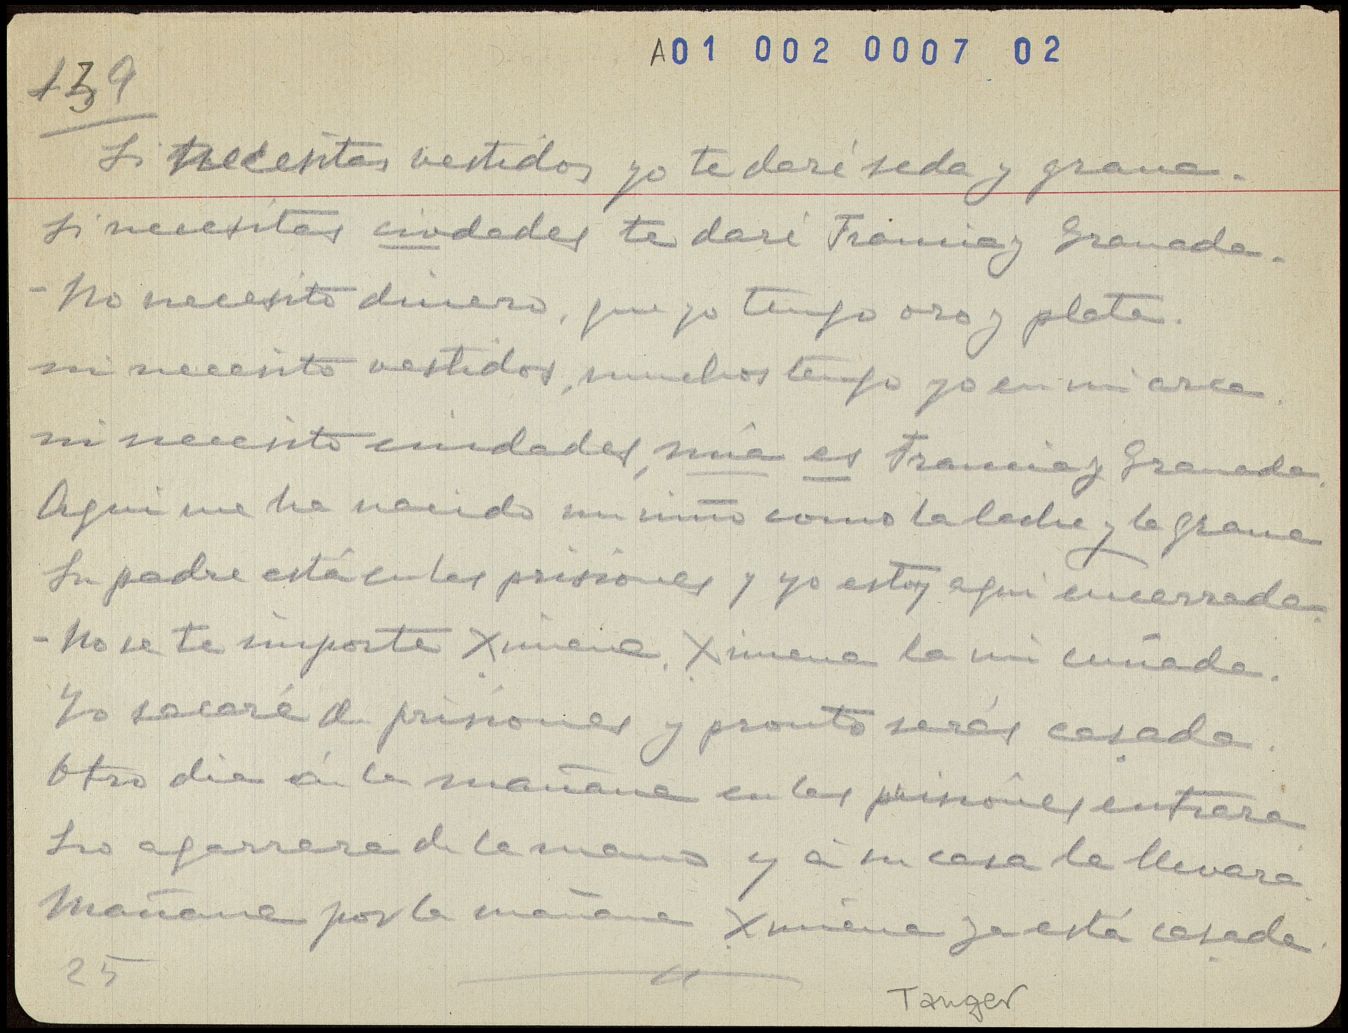 A01 002 0007 02
139
Si necesitas vestidos yo te daré seda y grana.
Si necesitas ciudades te daré Francia y Granada.
- No necesito dinero, que yo tengo oro y plata.
ni necesito vestidos, muchos tengo yo en mi arca.
ni necesito ciudades, mía es Francia y Granada.
Aquí me ha nacido un niño como la leche y la grana
Su padre está en las prisiones y yo estoy aquí encerrada.
- No se te importe Ximena, Ximena la mi cuñada.
Yo sacaré de prisiones y pronto serás casada.
Otro dia á la mañana en las prisiones entrara
Lo agarrara de la mano y á su casa la llevara.
Mañana por la mañana Ximena ya está casada.
25
Tanger